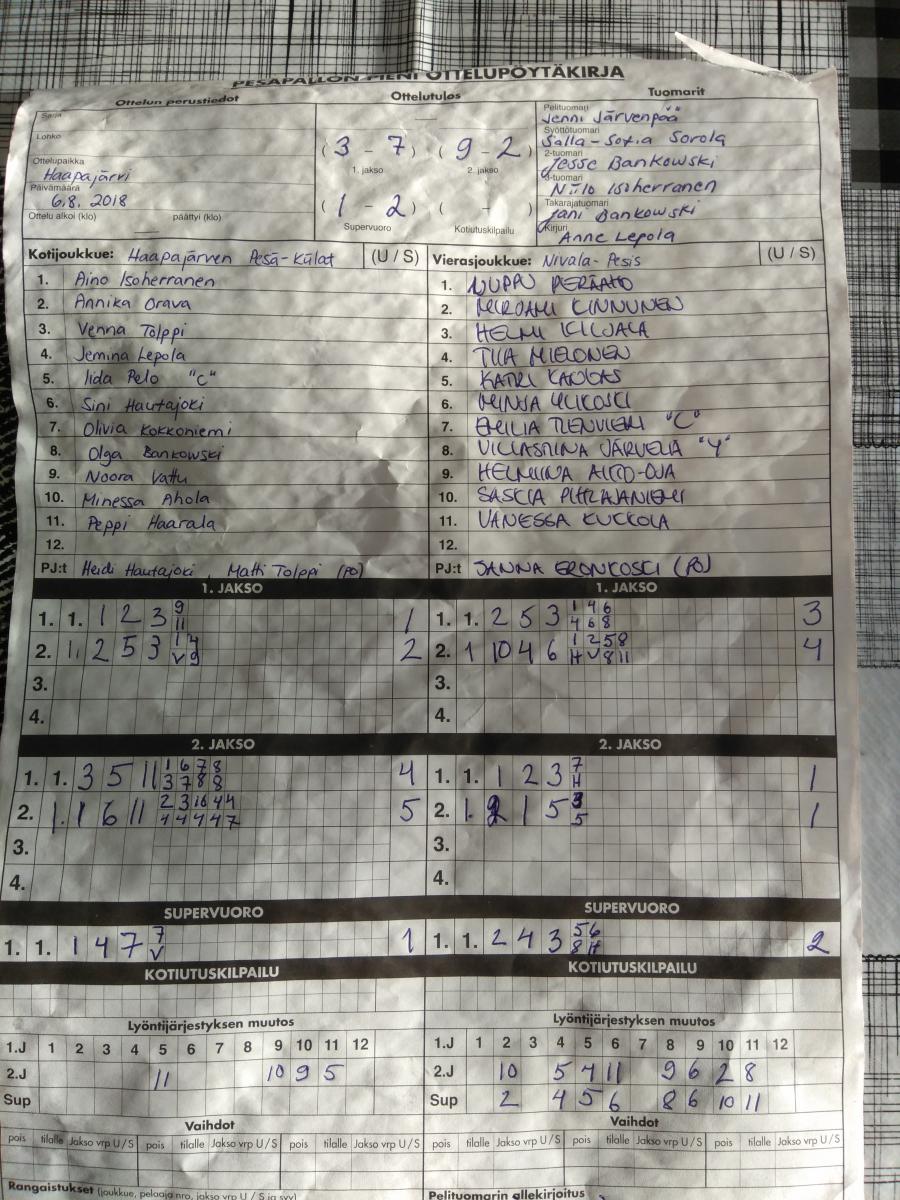 PESÄPALLON PIENI OTTELUPÖYTÄKIRJA
Ottelun perustiedot
Sarja
Lohko
Ottelupaikka
Haapajärvi
Päivämäärä
6.8. 2018
Ottelu alkoi (klo) päättyi (klo)
Ottelutulos
(3 - 7) (9 - 2)
1. jakso 2. jakso
(1 - 2) ( - )
Supervuoro Kotiutuskilpailu
Tuomarit
Pelituomari
Jenni Järvenpää
Syöttötuomari
Salla-Sofia Sorola
2-tuomari
Jesse Bankowski
3-tuomari
Niilo Isoherranen
Takarajatuomari
Jani Bankowski
Kirjuri
Anne Lepola
Kotijoukkue: Haapajärven Pesä-Kiilat (U / S)
1. Aino Isoherranen
2. Annika Orava
3. Venna Tolppi
4. Jemina Lepola
5. Iida Pelo "C"
6. Sini Hautajoki
7. Olivia Kokkoniemi
8. Olga Bankowski
9. Noora Vattu
10. Minessa Ahola
11. Peppi Haarala
12.
PJ:t Heidi Hautajoki, Matti Tolppi (PO)
Vierasjoukkue: Nivala-Pesis (U / S)
1. NUPPU PERÄAHO
2. MIROAMI KINNUNEN
3. HELMI KILJALA
4. TIIA MIELONEN
5. KATRI KANGAS
6. MINJA YLIKOSKI
7. EMILIA TIENVIERI "C"
8. VILLASTIINA JÄRVELÄ "Y"
9. HELMIINA AITTO-OJA
10. SASKIA PIHLAJANIEMI
11. VANESSA KUKKOLA
12.
PJ:t JANNA ERONKOSKI (PO)
1. JAKSO
1. 1. 1 2 3 9 1
11
2. 1. 2 5 3 1 4 2
V 9
3.
4.
1. JAKSO
1. 1. 2 5 3 1 4 6 3
4 6 8
2. 1 10 4 6 1 2 5 8 4
H V 8 11
3.
4.
2. JAKSO
1. 1. 3 5 11 1 6 7 8 4
3 7 8 8
2. 1. 1 6 11 2 3 16 4 4 5
4 4 4 4 7
3.
4.
2. JAKSO
1. 1. 1 2 3 7 1
H
2. 1. 2 1 5 3 1
5
3.
4.
SUPERVUORO
1. 1. 1 4 7 7 1
V
SUPERVUORO
1. 1. 2 4 3 5 6 2
8 H
KOTIUTUSKILPAILU
KOTIUTUSKILPAILU
Lyöntijärjestyksen muutos
1.J 1 2 3 4 5 6 7 8 9 10 11 12
2.J 11 10 9 5
Sup
Lyöntijärjestyksen muutos
1.J 1 2 3 4 5 6 7 8 9 10 11 12
2.J 10 5 4 11 9 6 2 8
Sup 2 4 5 6 8 6 10 11
Vaihdot
pois tilalle Jakso vrp U / S pois tilalle Jakso vrp U / S pois tilalle Jakso vrp U / S
Vaihdot
pois tilalle Jakso vrp U / S pois tilalle Jakso vrp U / S pois tilalle Jakso vrp U / S
Rangaistukset (joukkue, pelaaja nro, jakso vrp U / S ja syy)
Pelituomarin allekirjoitus